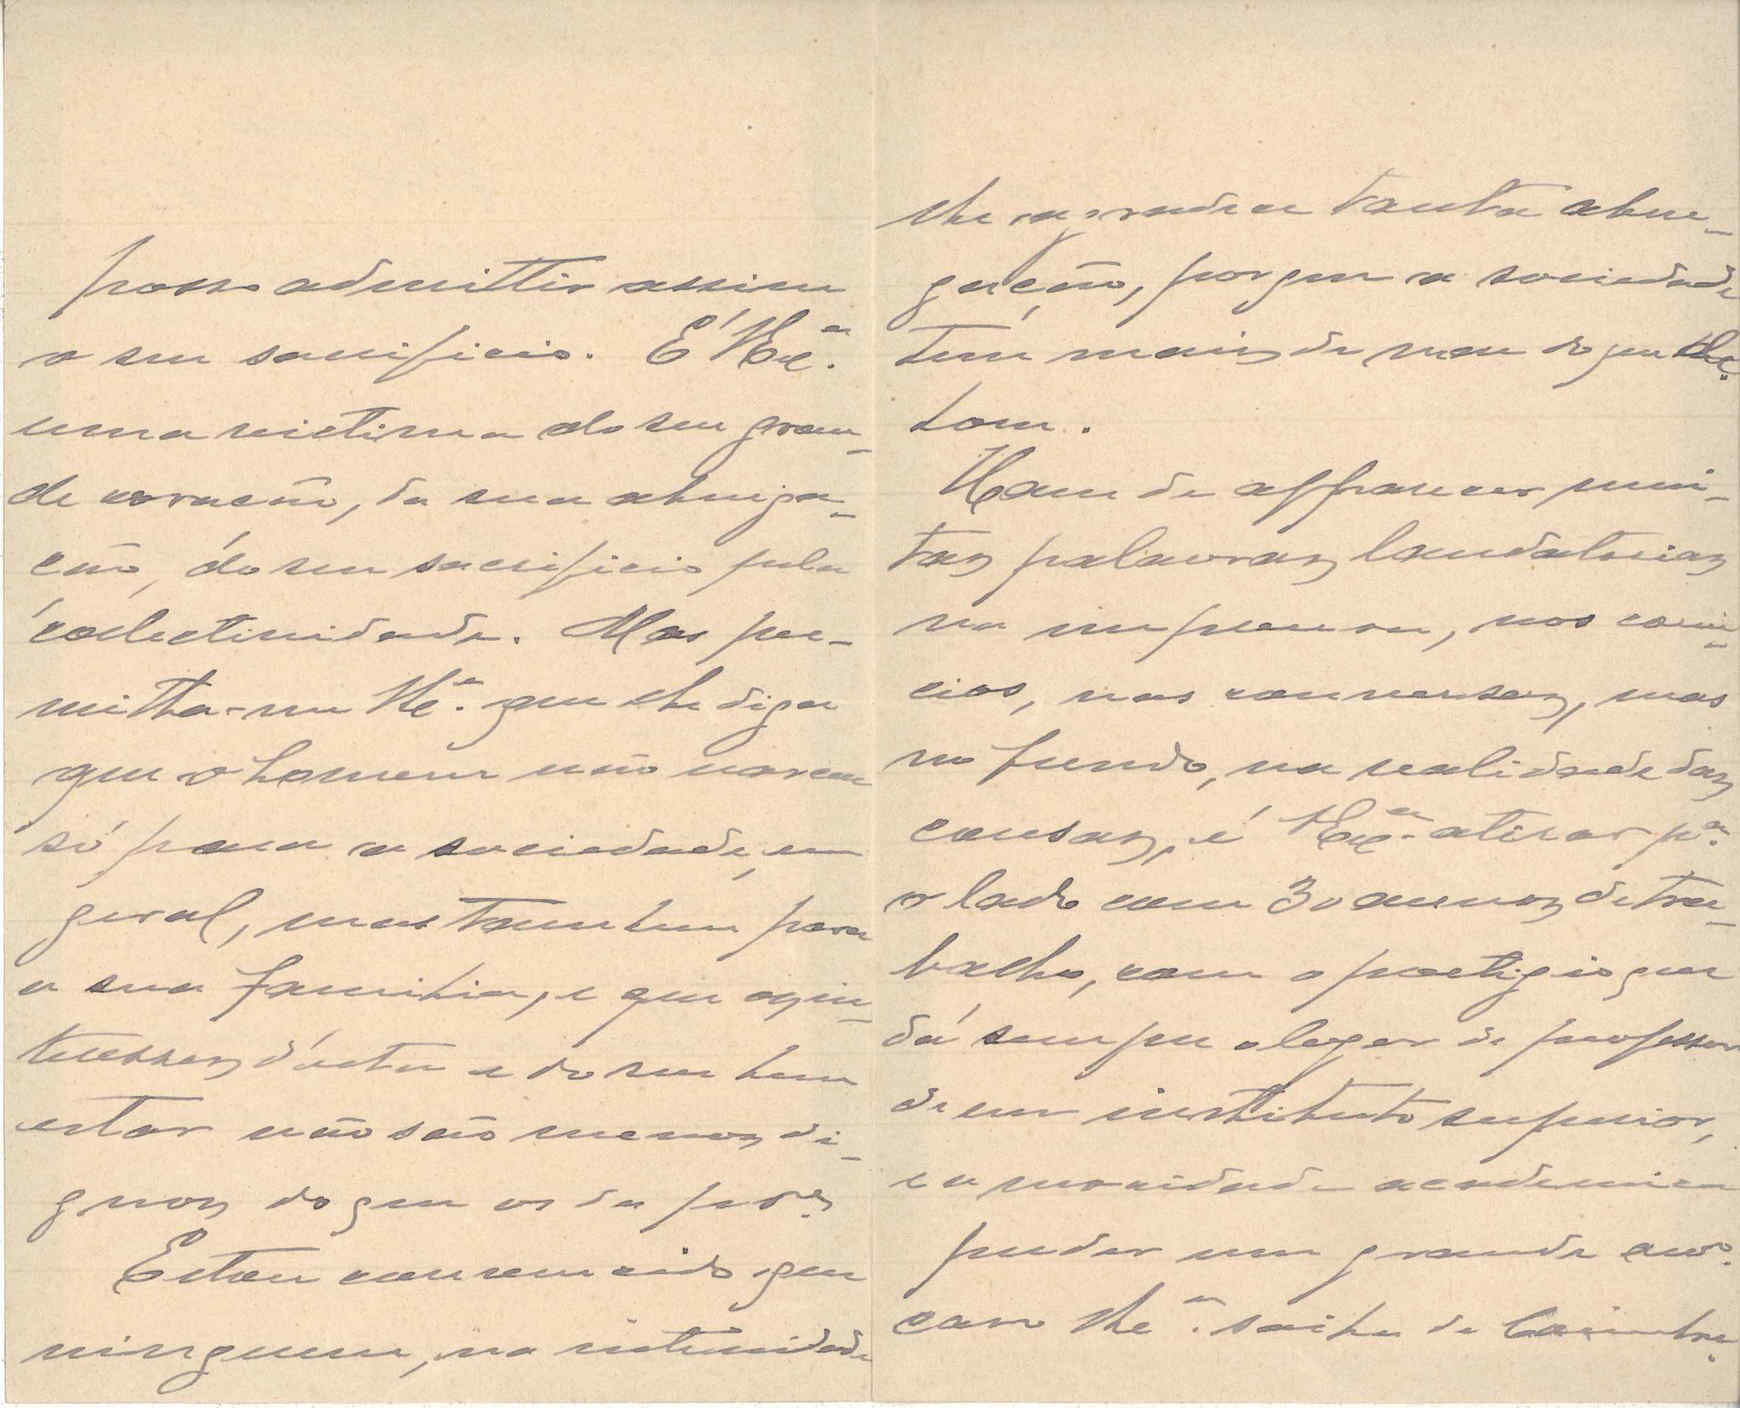 posso admittir assim
o seu sacrificio. É V Ex.ª
uma victima do seu gran-
de coração, da sua abnega-
ção, do seu sacrificio pela
collectividade. Mas per-
mitta-me V Eˣ.ª que lhe diga
que o homem não nasceu
só para a sociedade, em
geral, mas tambem para
a sua familia, e que os in-
teresses d'esta e do seu bem
estar não são menos di-
gnos do que os da
Estou convencido que
ninguem, na intimidade
lhe agradece tanta abne-
gação, porque a sociedade
tem mais de mau do que de
bom.
Ham de apparecer mui-
tas palavras laudatorias
na imprensa, nos comi-
cios, nas conversas, mas
no fundo, na realidade das
cousas, é V Ex.ª atirar p.ª
o lado com 30 annos de tra-
balho, com o prestigio que
dá sempre o logar de professor
de um instituto superior,
e a mocidade academica
perder um grande
caso V Eˣ.ª saiha de Coimbra.